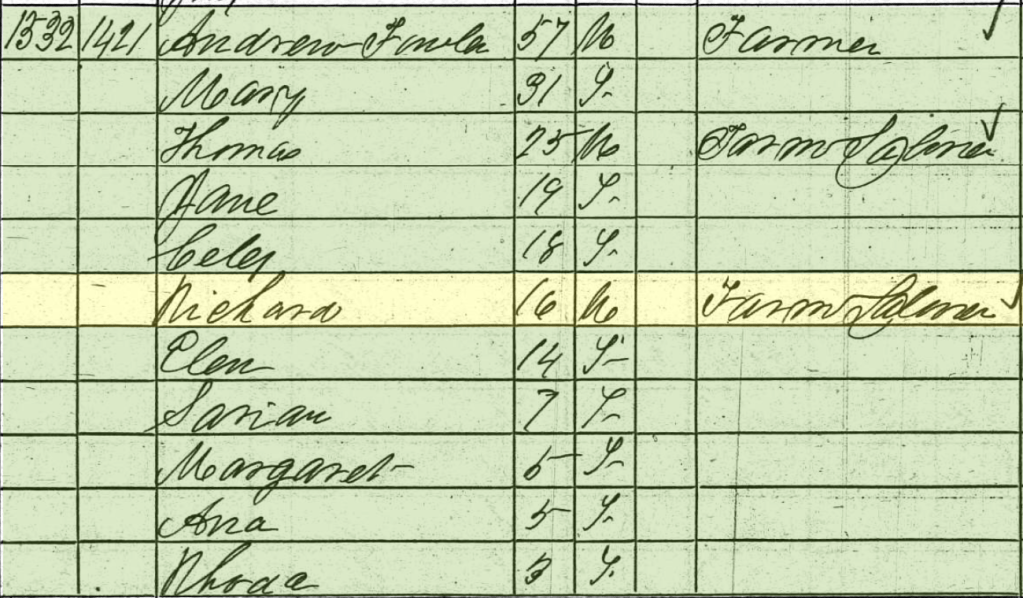 1532 1421 Andrew Fowler 57 M Farmer
Mary 31 F
Thomas 25 M Farm Laborer
Jane 19 F
Celey 18 F
Richard 16 M Farm Laborer
Elen 14 F
Sarian 7 F
Margaret 5 F
Ana 5 F
Rhoda 3 F